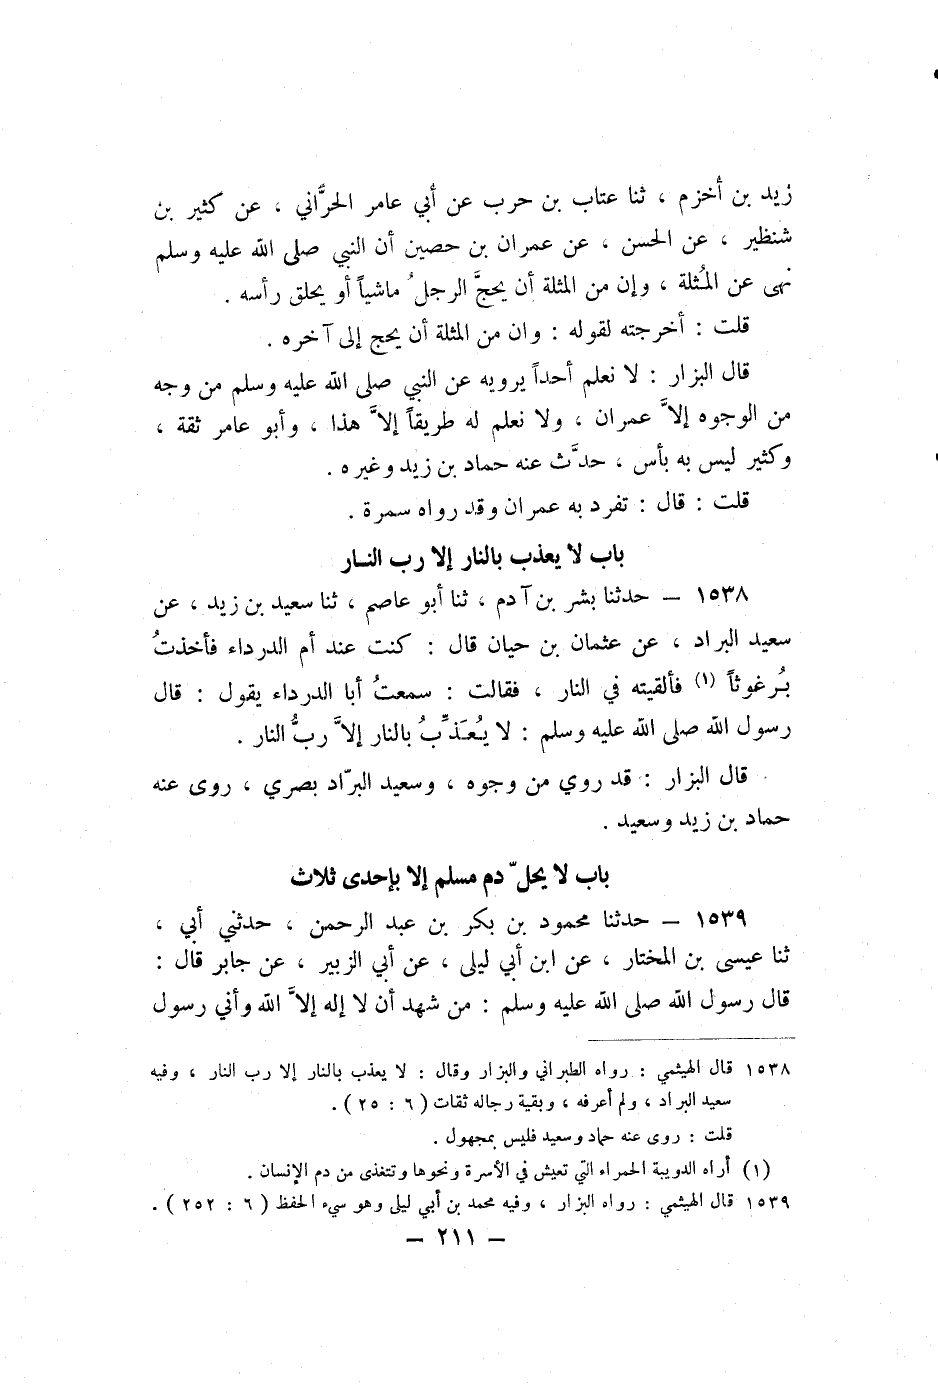 زيد بن أخزم ، ثنا عتاب بن حرب عن أبي عامر الحرَّاني ، عن كثير بن
شنظير ، عن الحسن ، عن عمران بن حصين أن النبي صلى الله عليه وسلم
نهى عن المُثلة ، وإن من المثلة أن يحجَّ الرجلُ ماشياً أو يحلق رأسه .
قلت : أخرجته لقوله : وان من المثلة أن يحج إلى آخره .
قال البزار : لا نعلم أحداً يرويه عن النبي صلى الله عليه وسلم من وجه
من الوجوه إلاَّ عمران ، ولا نعلم له طريقاً إلاَّ هذا ، وأبو عامر ثقة ،
وكثير ليس به بأس ، حدَّث عنه حماد بن زيد وغيره .
قلت : قال : تفرد به عمران وقد رواه سمرة .
باب لا يعذب بالنار إلا رب النــار
١٥٣٨ – حدثنا بشر بن آدم ، ثنا أبو عاصم ، ثنا سعيد بن زيد ، عن
سعيد البراد ، عن عثمان بن حيان قال : كنت عند أم الدرداء فأخذتُ
بُرغوثاً (١) فألقيته في النار ، فقالت : سمعتُ أبا الدرداء يقول : قال
رسول الله صلى الله عليه وسلم : لا يُعَذِّبُ بالنار إلاَّ ربُّ النار .
قال البزار : قد روي من وجوه ، وسعيد البرّاد بصري ، روى عنه
حماد بن زيد وسعيد .
باب لا يحلّ دم مسلم إلا بإحدى ثلاث
١٥٣٩ – حدثنا محمود بن بكر بن عبد الرحمن ، حدثني أبي ،
ثنا عيسى بن المختار ، عن ابن أبي ليلى ، عن أبي الزبير ، عن جابر قال :
قال رسول الله صلى الله عليه وسلم : من شهد أن لا إله إلاَّ الله وأني رسول
١٥٣٨ قال الهيثمي : رواه الطبراني والبزار وقال : لا يعذب بالنار إلا رب النار ، وفيه
سعيد البراد ، ولم أعرفه ، وبقية رجاله ثقات ( ٦ : ٢٥ ) .
قلت : روى عنه حماد وسعيد فليس بمجهول .
(١) أراه الدويبة الحمراء التي تعيش في الأسرة ونحوها وتتغذى من دم الإنسان .
١٥٣٩ قال الهيثمي : رواه البزار ، وفيه محمد بن أبي ليلى وهو سيء الحفظ ( ٦ : ٢٥٢ ) .
– ٢١١ –